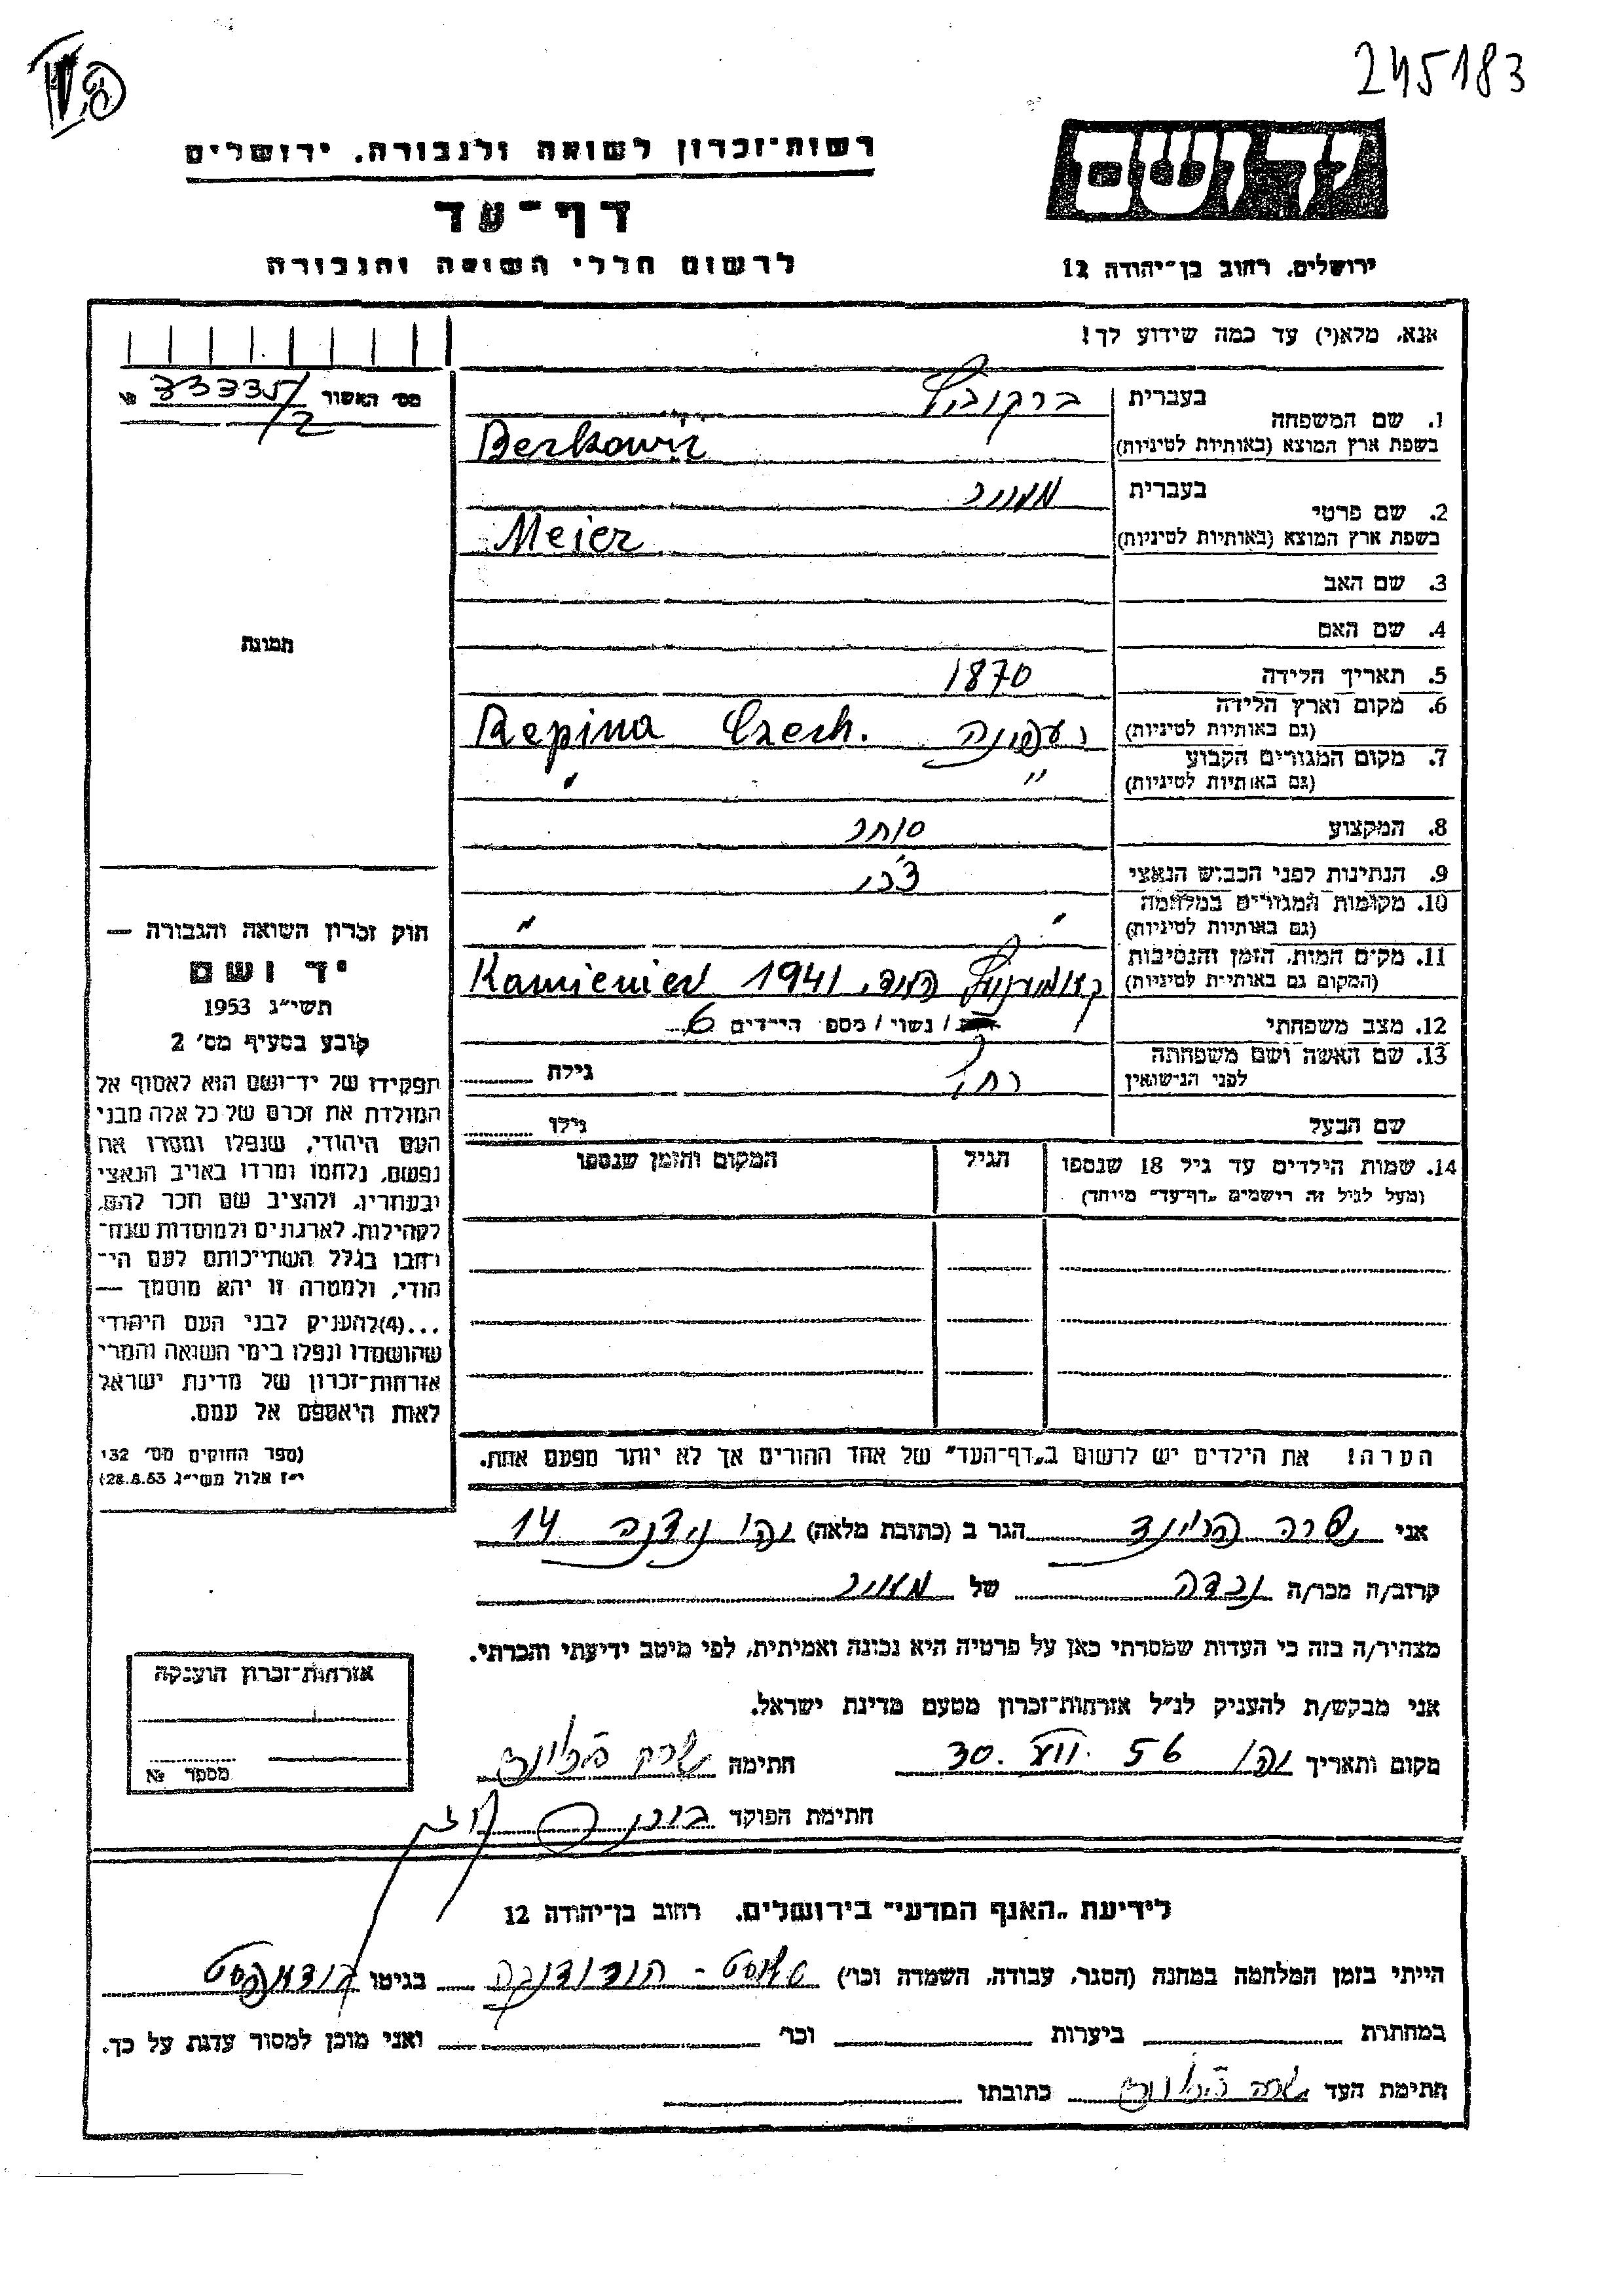 245183
יד ושם
רשות־זכרון לשואה ולגבורה, ירושלים
דף־עד
לרשום חללי השואה והגבורה
ירושלים, רחוב בן־יהודה 12
אנא, מלא(י) עד כמה שידוע לך!
מס׳ האשור 33335/2 №
1. שם המשפחה בעברית ברקוביץ
בשפת ארץ המוצא (באותיות לטיניות) Berkowiz
2. שם פרטי בעברית מאיר
בשפת ארץ המוצא (באותיות לטיניות) Meier
3. שם האב
4. שם האם
5. תאריך הלידה 1870
6. מקום וארץ הלידה (גם באותיות לטיניות) רעפינה Repina Czech.
7. מקום המגורים הקבוע (גם באותיות לטיניות) " "
8. המקצוע סוחר
9. הנתינות לפני הכבוש הנאצי צ׳כי
10. מקומות המגורים במלחמה (גם באותיות לטיניות) " "
11. מקום המות, הזמן והנסיבות (המקום גם באותיות לטיניות) 1941 Kamieniec
12. מצב משפחתי / נשוי / מספר הילדים 6
13. שם האשה ושם משפחתה לפני הנישואין רחל גילה
שם הבעל גילו
14. שמות הילדים עד גיל 18 שנספו (מעל לגיל זה רושמים "דף־עד" מיוחד) הגיל המקום והזמן שנספו
הערה! את הילדים יש לרשום ב"דף־העד" של אחד ההורים אך לא יותר מפעם אחת.
תמונה
חוק זכרון השואה והגבורה —
יד ושם
תשי״ג 1953
קובע בסעיף מס׳ 2
תפקידו של יד־ושם הוא לאסוף אל
המולדת את זכרם של כל אלה מבני
העם היהודי, שנפלו ומסרו את
נפשם, נלחמו ומרדו באויב הנאצי
ובעוזריו, ולהציב שם וזכר להם,
לקהילות, לארגונים ולמוסדות שנח־
רבו בגלל השתייכותם לעם הי־
הודי, ולמטרה זו יהא מוסמך —
...(4)להעניק לבני העם היהודי
שהושמדו ונפלו בימי השואה והמרי
אזרחות־זכרון של מדינת ישראל
לאות היאספם אל עמם.
(ספר החוקים מס׳ 132
י״ז אלול תשי״ג 28.8.53)
אני שרה הגר ב (כתובת מלאה) 14
קרוב/ה מכר/ה נכדה של מאיר
מצהיר/ה בזה כי העדות שמסרתי כאן על פרטיה היא נכונה ואמיתית, לפי מיטב ידיעתי והכרתי.
אני מבקש/ת להעניק לנ״ל אזרחות־זכרון מטעם מדינת ישראל.
מקום ותאריך 30. VII. 56 חתימה שרה
חתימת הפוקד
אזרחות־זכרון הוענקה
מספר №
לידיעת "האגף המדעי" בירושלים, רחוב בן־יהודה 12
הייתי בזמן המלחמה במחנה (הסגר, עבודה, השמדה וכו׳) בגיטו בודאפסט
במחתרת ביערות וכו׳ ואני מוכן למסור עדות על כך.
חתימת העד שרה כתובתו